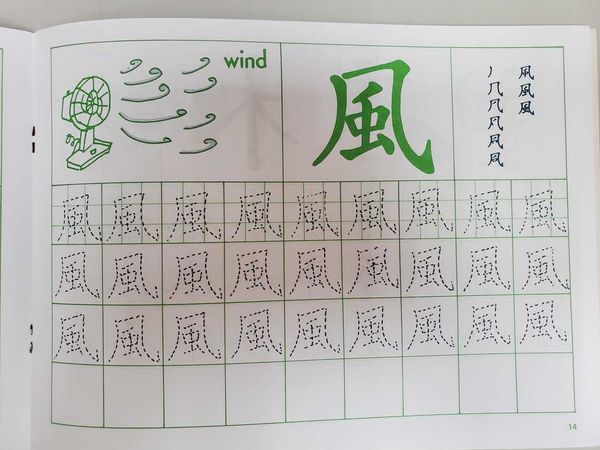 wind
風
丿
几
風
風 風 風 風 風 風 風 風 風
風 風 風 風 風 風 風 風 風
風 風 風 風 風 風 風 風 風
14